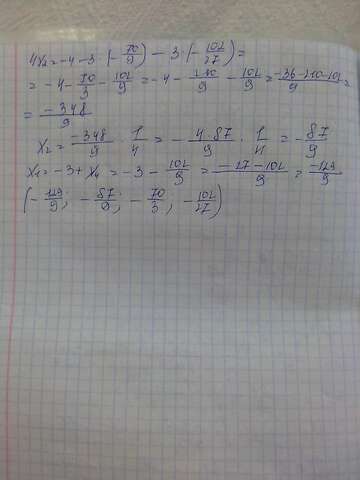 4x₂ = -4 - 3 · (-70/9) - 3 · (-102/27) =
= -4 - 70/3 - 102/9 = -4 - 210/9 - 102/9 = (-36-210-102)/9 =
= -348/9
x₂ = -348/9 · 1/4 = - 4·87/9 · 1/4 = -87/9
x₁ = -3 + x₄ = -3 - 102/9 = (-27-102)/9 = -129/9
(-129/9; -87/9, -70/3, -102/27)